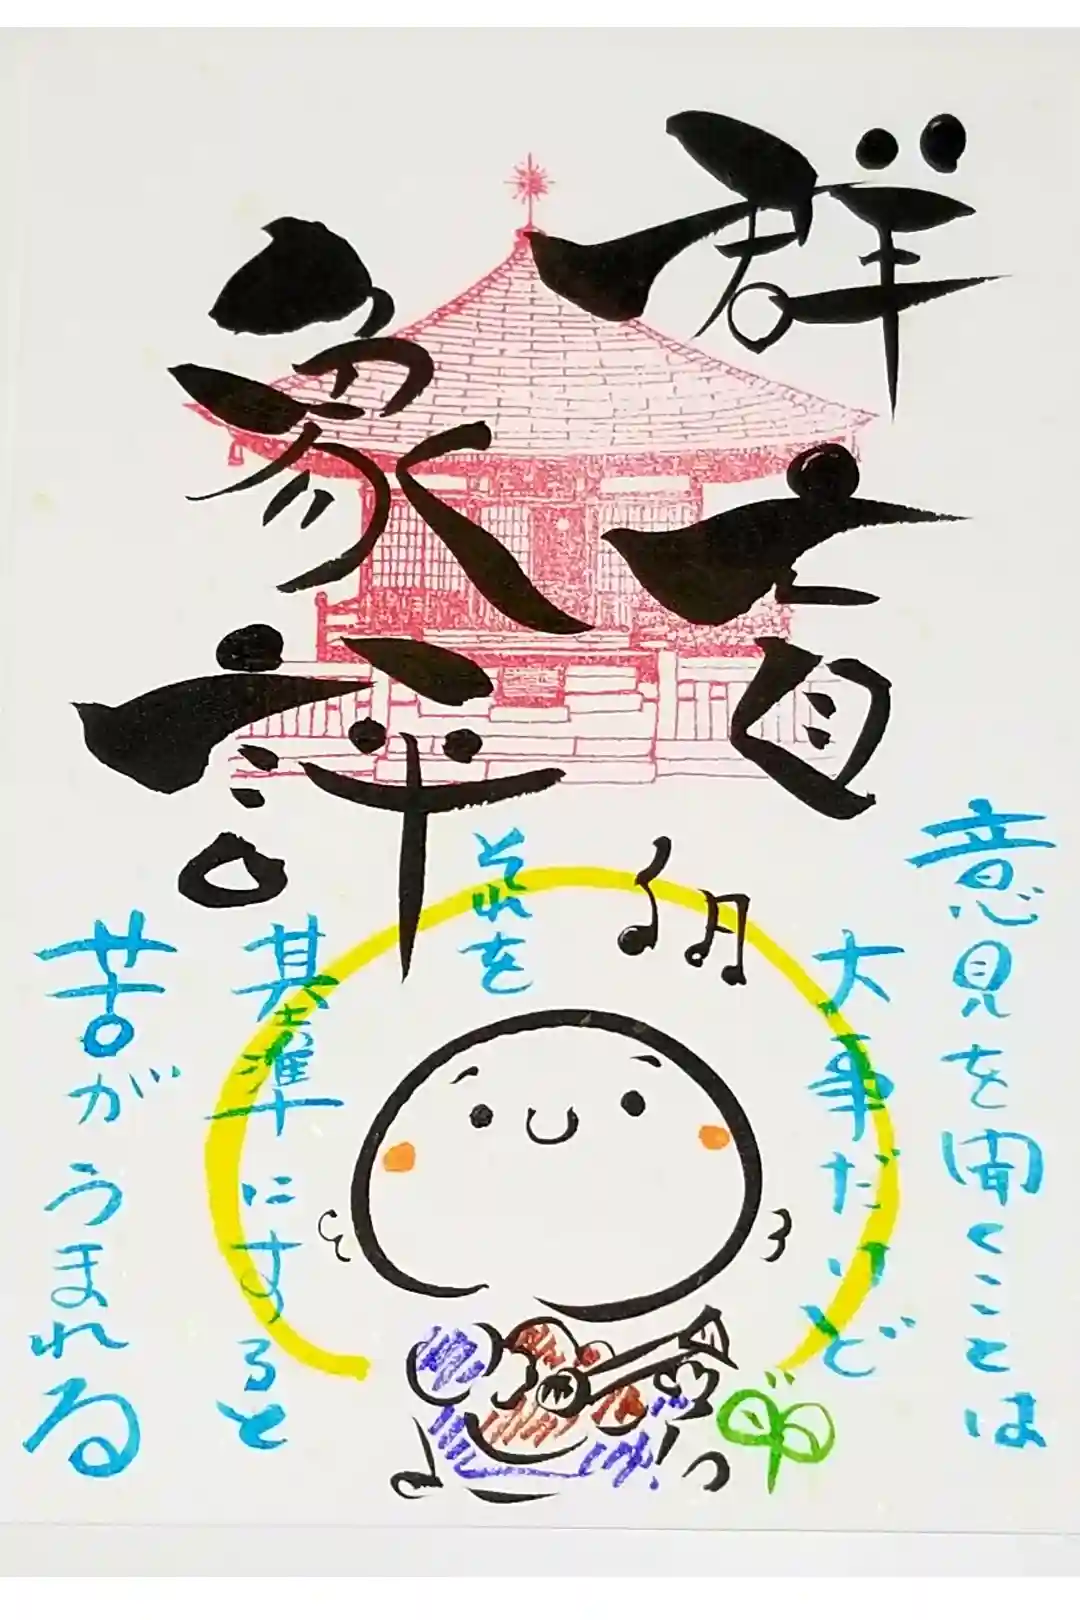 群盲
象評
意見を聞くことは
大事だけど
それを
基準にすると
苦がうまれる